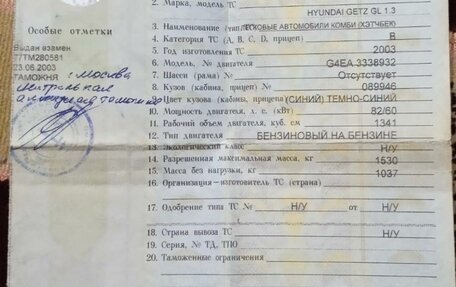 Особые отметки
Выдан взамен
77ТМ280581
23.06.2003
ТАМОЖНЯ г. Москва
Центральная
2. Марка, модель ТС HYUNDAI GETZ GL 1.3
3. Наименование (тип ЛЕГКОВЫЕ АВТОМОБИЛИ КОМБИ (ХЭТЧБЕК)
4. Категория ТС (А, В, С, D, прицеп) В
5. Год изготовления ТС 2003
6. Модель, № двигателя G4EA 3338932
7. Шасси (рама) № Отсутствует
8. Кузов (кабина, прицеп) № 089946
9. Цвет кузова (кабины, прицепа) (СИНИЙ) ТЕМНО-СИНИЙ
10. Мощность двигателя, л. с. (кВт) 82/60
11. Рабочий объем двигателя, куб. см 1341
12. Тип двигателя БЕНЗИНОВЫЙ НА БЕНЗИНЕ
13. Экологический класс Н/У
14. Разрешенная максимальная масса, кг 1530
15. Масса без нагрузки, кг 1037
16. Организация-изготовитель ТС (страна)
17. Одобрение типа ТС № Н/У от Н/У
18. Страна вывоза ТС Н/У
19. Серия, № ТД, ТПО
20. Таможенные ограничения